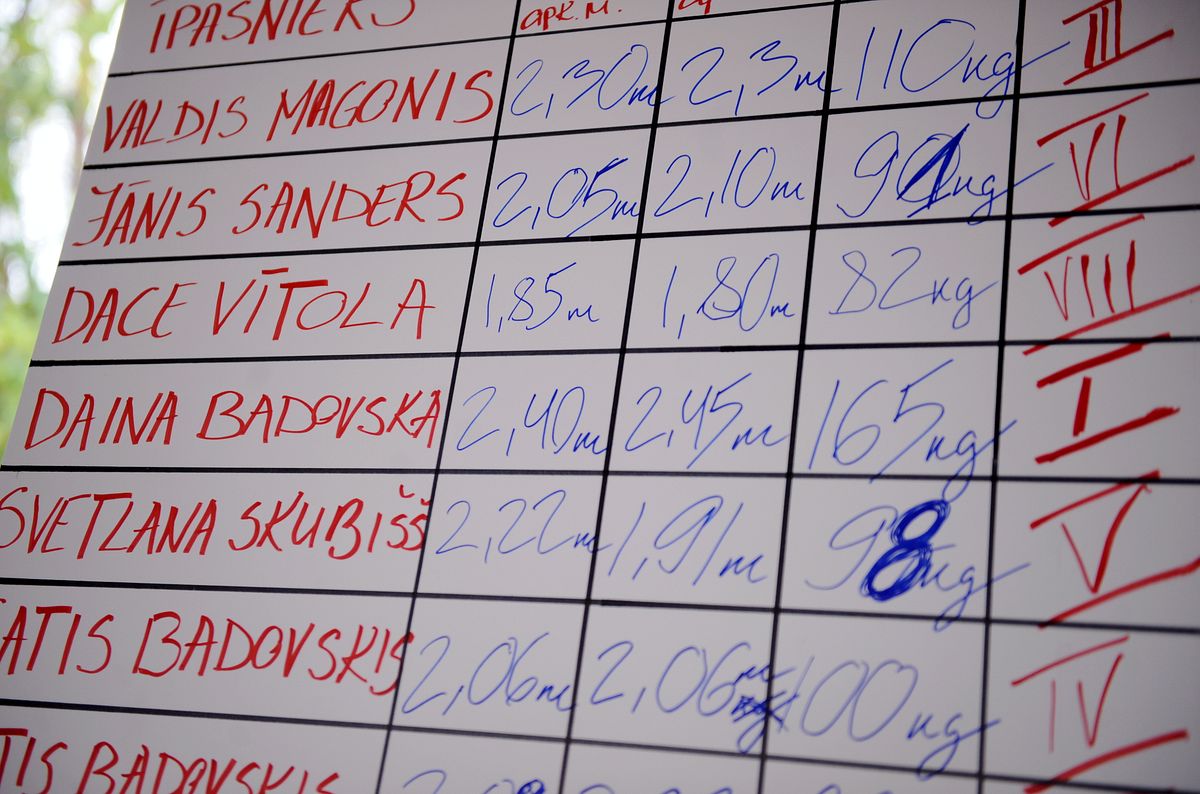 ĪPAŠNIEKS apk. m.
VALDIS MAGONIS 2,30m 2,3m 110kg III
JĀNIS SANDERS 2,05m 2,10m 91kg VI
DACE VĪTOLA 1,85m 1,80m 82kg VIII
DAINA BADOVSKA 2,40m 2,45m 165kg I
SVETLANA SKUBIŠŠ 2,22m 1,91m 98kg V
ATIS BADOVSKIS 2,06m 2,06m 100kg IV
TIS BADOVSKIS